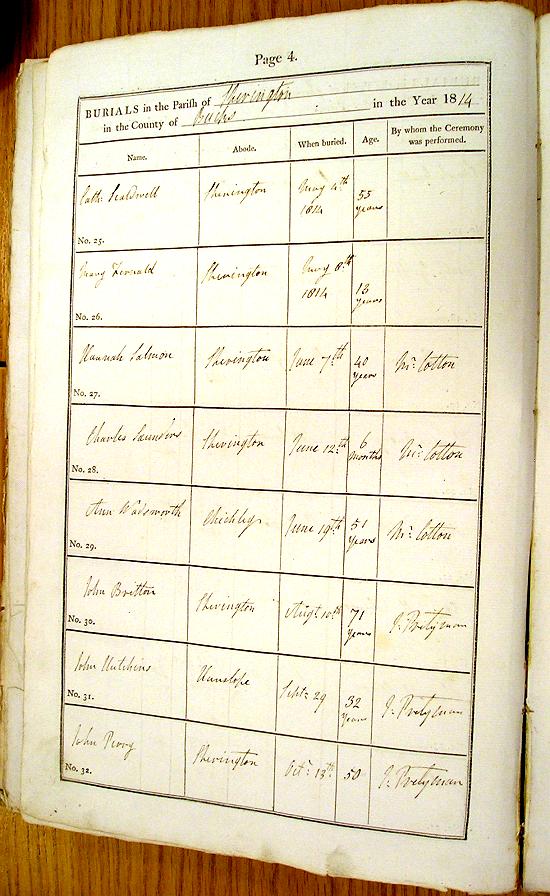 Page 4.
BURIALS in the Parish of Sherington
in the County of Bucks in the Year 1814
Name. Abode. When buried. Age. By whom the Ceremony was performed.
Cath: Sherington May 4th 1814 55 years
No. 25.
Mary Sherington May 8th 1814 13 years
No. 26.
Hannah Salmon Sherington June 7th 40 years Mr: Cotton
No. 27.
Charles Saunders Sherington June 12th 6 months Mr: Cotton
No. 28.
Ann Wadsworth Chichley June 19th 51 Years Mr: Cotton
No. 29.
John Britton Sherington Augt 10th 71 Years J: Pretyman
No. 30.
John Hutchins Hanslope Septr 29 32 Years J: Pretyman
No. 31.
John Perry Sherington Octr 13th 50 J: Pretyman
No. 32.